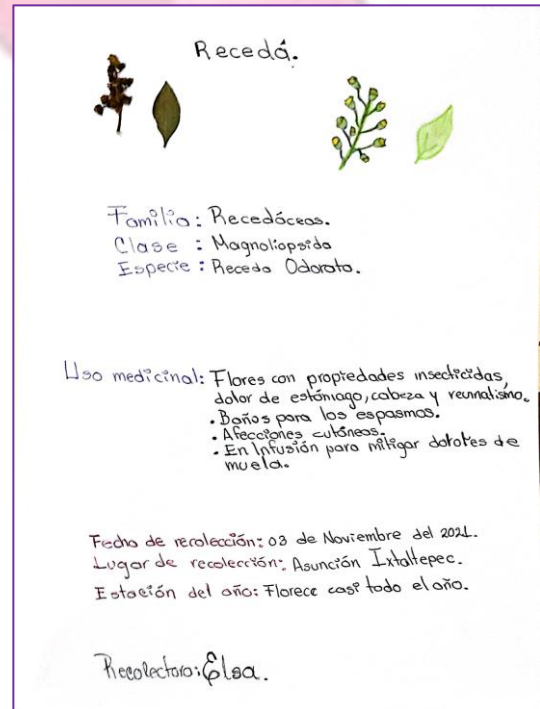 Recedá.
Familia: Recedáceas.
Clase : Magnoliopsida
Especie : Receda Odorata.
Uso medicinal: Flores con propiedades insecticidas,
dolor de estómago, cabeza y reumatismo.
. Baños para los espasmos.
. Afecciones cutáneas.
. En Infusión para mitigar dolores de
muela.
Fecha de recolección: 03 de Noviembre del 2021.
Lugar de recolección: Asunción Ixtaltepec.
Estación del año: Florece casi todo el año.
Recolectora: Elsa.